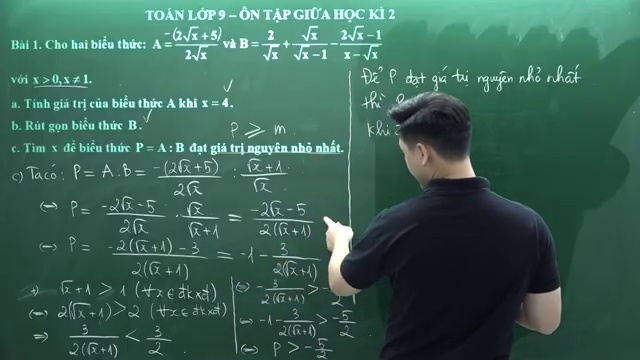 TOÁN LỚP 9 – ÔN TẬP GIỮA HỌC KÌ 2
Bài 1. Cho hai biểu thức: A = -(2√x+5)/2√x và B = 2/√x + √x/(√x-1) - (2√x-1)/(x-√x)
với x > 0, x ≠ 1.
a. Tính giá trị của biểu thức A khi x = 4.
b. Rút gọn biểu thức B.
P ⩾ m
c. Tìm x để biểu thức P = A : B đạt giá trị nguyên nhỏ nhất.
c) Ta có: P = A : B = -(2√x+5)/2√x : (√x+1)/√x
⇔ P = (-2√x-5)/2√x . √x/(√x+1) = (-2√x-5)/2(√x+1)
⇔ P = (-2(√x+1)-3)/2(√x+1) = -1 - 3/2(√x+1)
+) √x+1 > 1 (∀x∈đkxđ)
⇔ 2(√x+1) > 2 (∀x∈đkxđ)
⇒ 3/2(√x+1) < 3/2
⇔ -3/2(√x+1) >
⇔ -1 - 3/2(√x+1) > -5/2
⇔ P > -5/2
Để P đạt giá trị nguyên nhỏ nhất
thì
khi